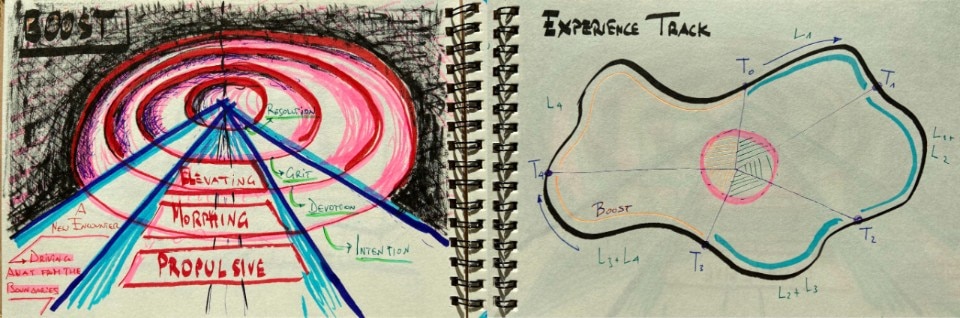 BOOST
RESOLUTION
ELEVATING
GRIT
MORPHING
DEVOTION
A
NEW ENCOUNTER
INTENTION
DRIVING
AWAY FROM THE
BOUNDARIES
PROPULSIVE
EXPERIENCE TRACK
L1
T0
T1
L4
L1+
L2
T4
BOOST
T2
L3+L4
T3
L2+L3